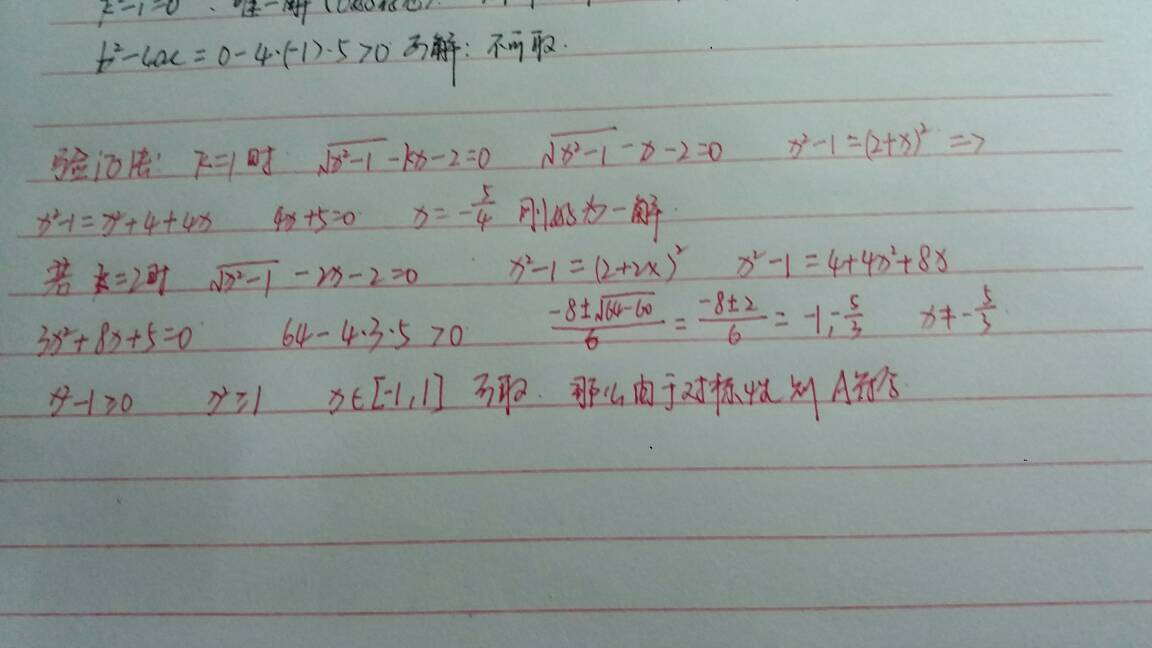 k²-1=0 唯一解
b²-4ac = 0-4·(-1)·5>0 两解: 不可取.
验证法: k=1时 √x²-1 -kx-2=0 √x²-1 -x-2=0 x²-1=(2+x)² =>
x²-1=x²+4+4x 4x+5=0 x=-5/4 刚好为一解.
若k=2时 √x²-1 -2x-2=0 x²-1=(2+2x)² x²-1=4+4x²+8x
3x²+8x+5=0 64-4·3·5>0 -8±√64-60/6 = -8±2/6 = -1,-5/3 x≠-5/3
x²-1≥0 x²≥1 x∈[-1,1] 可取. 那么由于对称性则A符合.